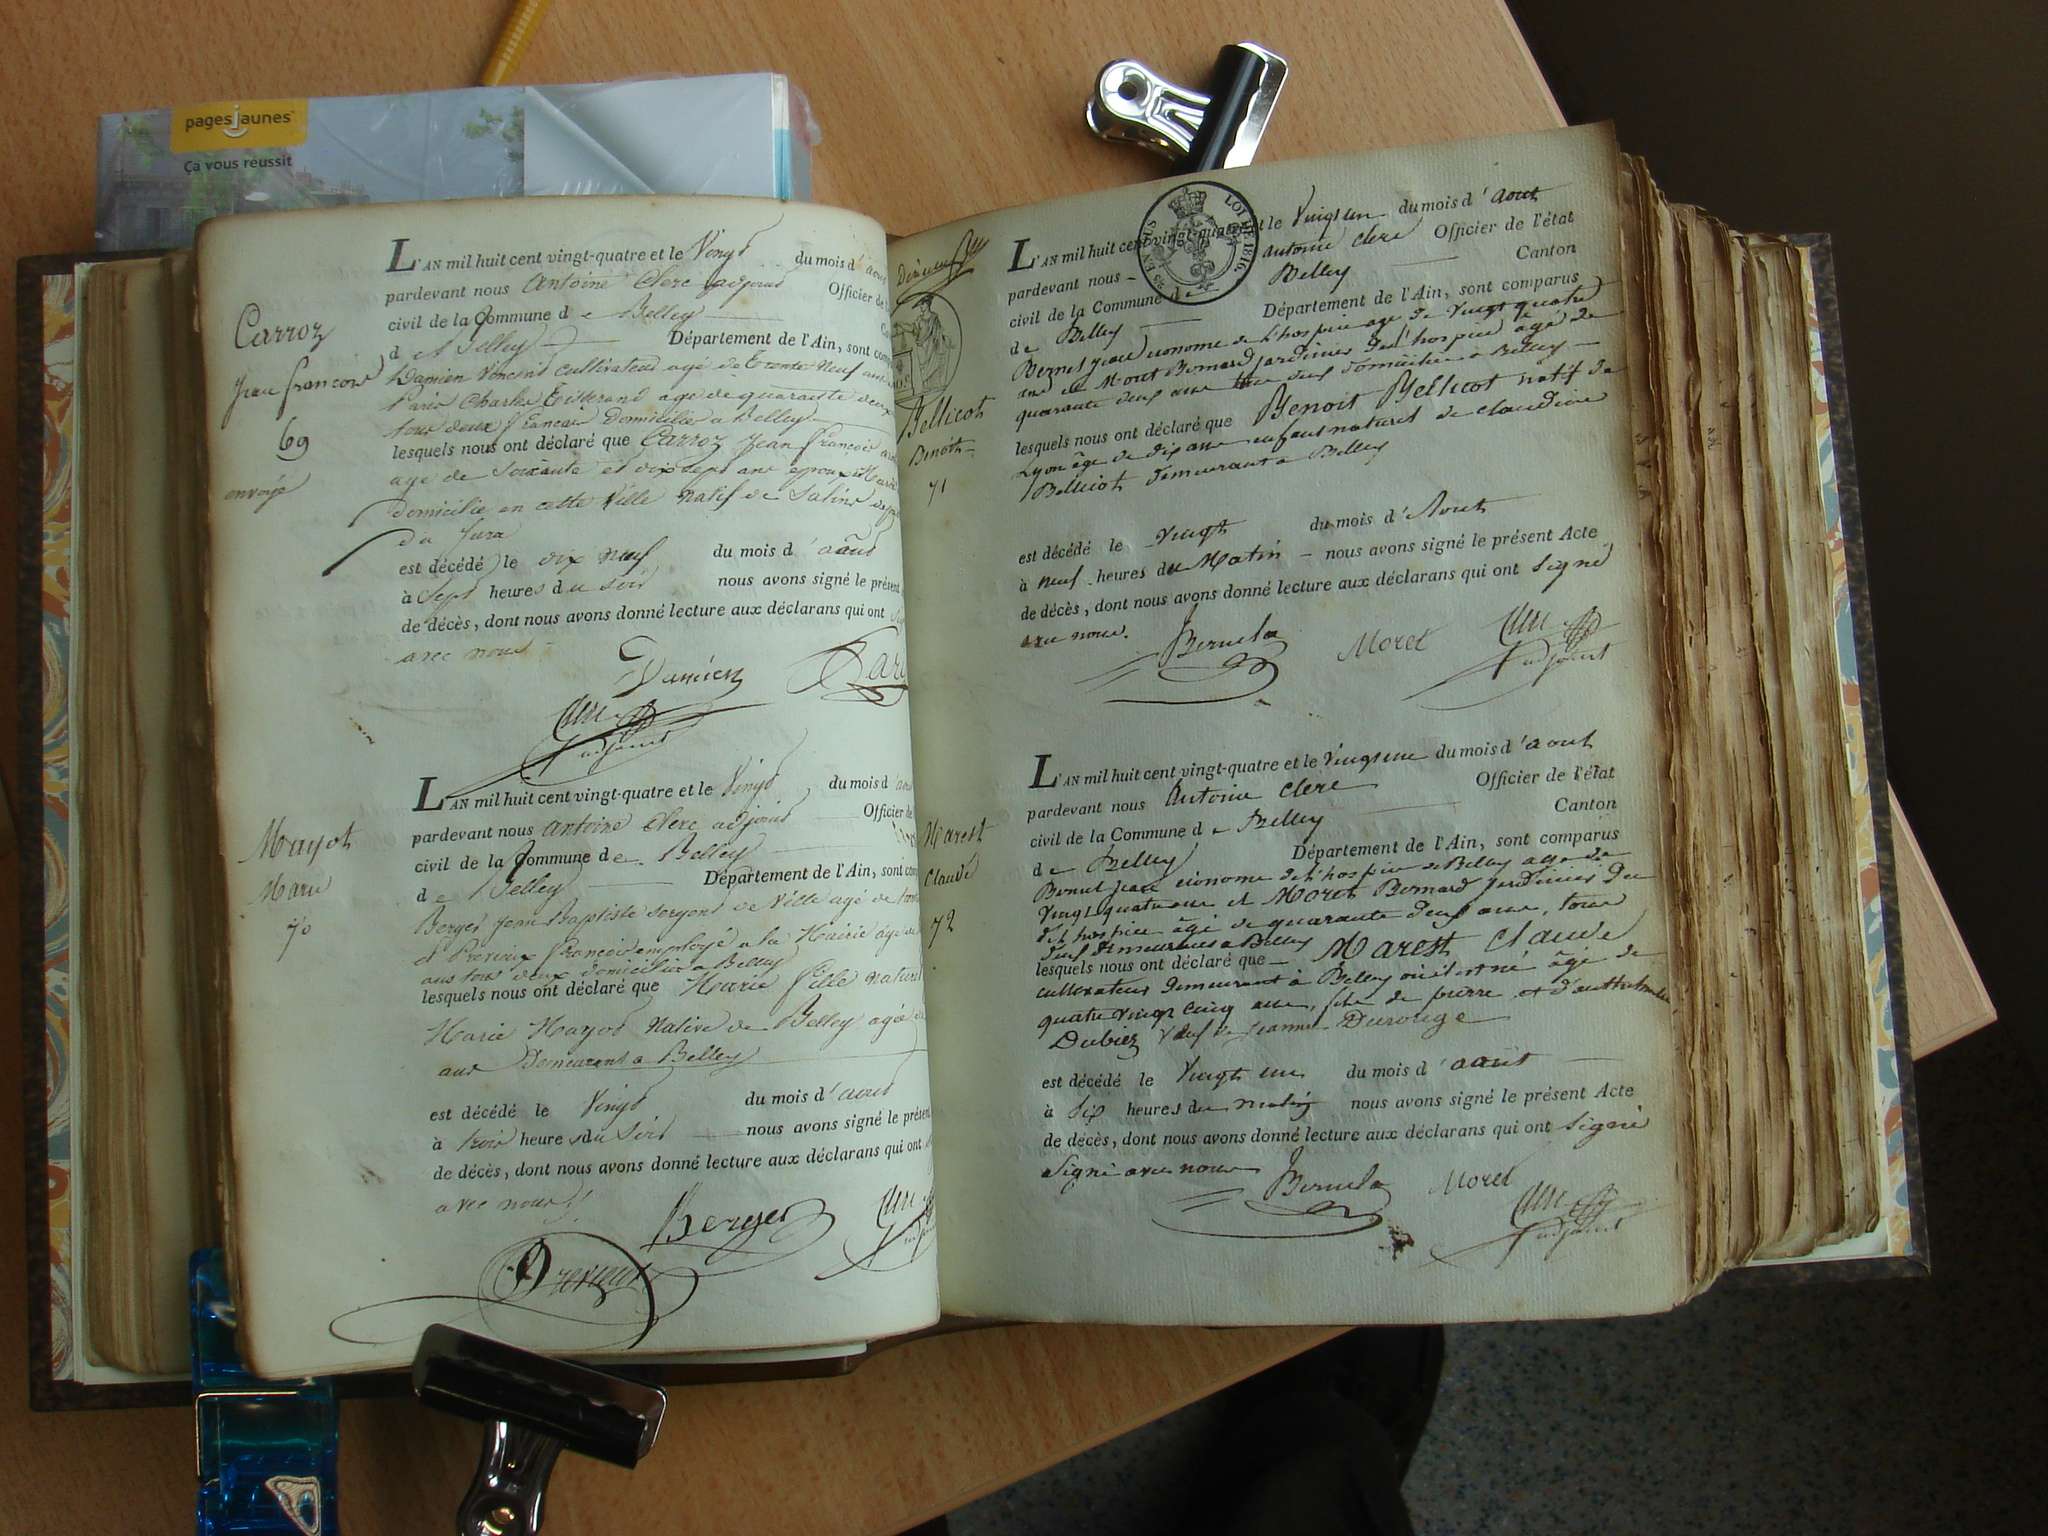 pagesjaunes
Ça vous réussit
Carroz
Jean françois
69
envoyé
L'AN mil huit cent vingt-quatre et le Vingt du mois d'aout
pardevant nous Antoine Clerc adjoint Officier de
civil de la Commune de Belley
de Belley Département de l'Ain, sont comp
Damien Vincent Cultivateur agé de trente neuf ans
Charles Tisserand age de quarante deux
tous deux français Domicilié a Belley
lesquels nous ont déclaré que Carroz Jean françois
age de soixante et dix sept ans epoux
domicilié en cette Ville natif de Salins
du Jura
est décédé le dix neuf du mois d'aout
à Sept heures du Soir nous avons signé le présent
de décès, dont nous avons donné lecture aux déclarans qui ont
avec nous
Damien
Clerc
adjoint
Mayot
Marie
70
L'AN mil huit cent vingt-quatre et le Vingt du mois d'aout
pardevant nous Antoine Clerc adjoint Officier de
civil de la Commune de Belley
de Belley Département de l'Ain, sont com
Berger Jean Baptiste sergent de Ville agé de
et Prerieux françois employé a la Mairie âgé de
ans tous deux domicilié a Belley
lesquels nous ont déclaré que Marie fille naturel
Marie Mayot Native de Belley agée de
ans Demeurant a Belley
est décédé le Vingt du mois d'aout
à trois heures du Soir nous avons signé le présent
de décès, dont nous avons donné lecture aux déclarans qui ont
avec nous
Berger
Clerc
Prerieux
LOI DE 1816.
Bellicot
Benoit
71
L'AN mil huit cent vingt-quatre et le Vingt un du mois d'aout
pardevant nous Antoine Clerc Officier de l'état
civil de la Commune de Belley Canton
de Belley Département de l'Ain, sont comparus
Bernet Jean économe de l'hospice age de Vingt quatre
ans et Moret Bernard Jardinier de l'hospice âgé de
quarante deux ans tous deux domicilié a Belley
lesquels nous ont déclaré que Benoit Bellicot natif de
Lyon âgé de dix ans enfant naturel de Claudine
Bellicot demeurant a Belley
est décédé le Vingt du mois d'Aout
à neuf heures du Matin nous avons signé le présent Acte
de décès, dont nous avons donné lecture aux déclarans qui ont Signé
avec nous.
Moret
Clerc
adjoint
Marest
Claude
72
L'AN mil huit cent vingt-quatre et le Vingt un du mois d'aout
pardevant nous Antoine Clerc Officier de l'état
civil de la Commune de Belley Canton
de Belley Département de l'Ain, sont comparus
Bernet Jean économe de l'hospice de Belley age de
Vingt quatre ans et Moret Bernard Jardinier de
l'hospice âgé de quarante deux ans, tous
deux demeurants a Belley
lesquels nous ont déclaré que Marest Claude
cultivateur demeurant à Belley où il est né âgé de
quatre vingt cinq ans, fils de pierre et d'
Dubiez Veuf de Jeanne Durouge
est décédé le Vingt un du mois d'aout
à Six heures du matin nous avons signé le présent Acte
de décès, dont nous avons donné lecture aux déclarans qui ont Signé
Signé avec nous
Moret
Clerc
adjoint